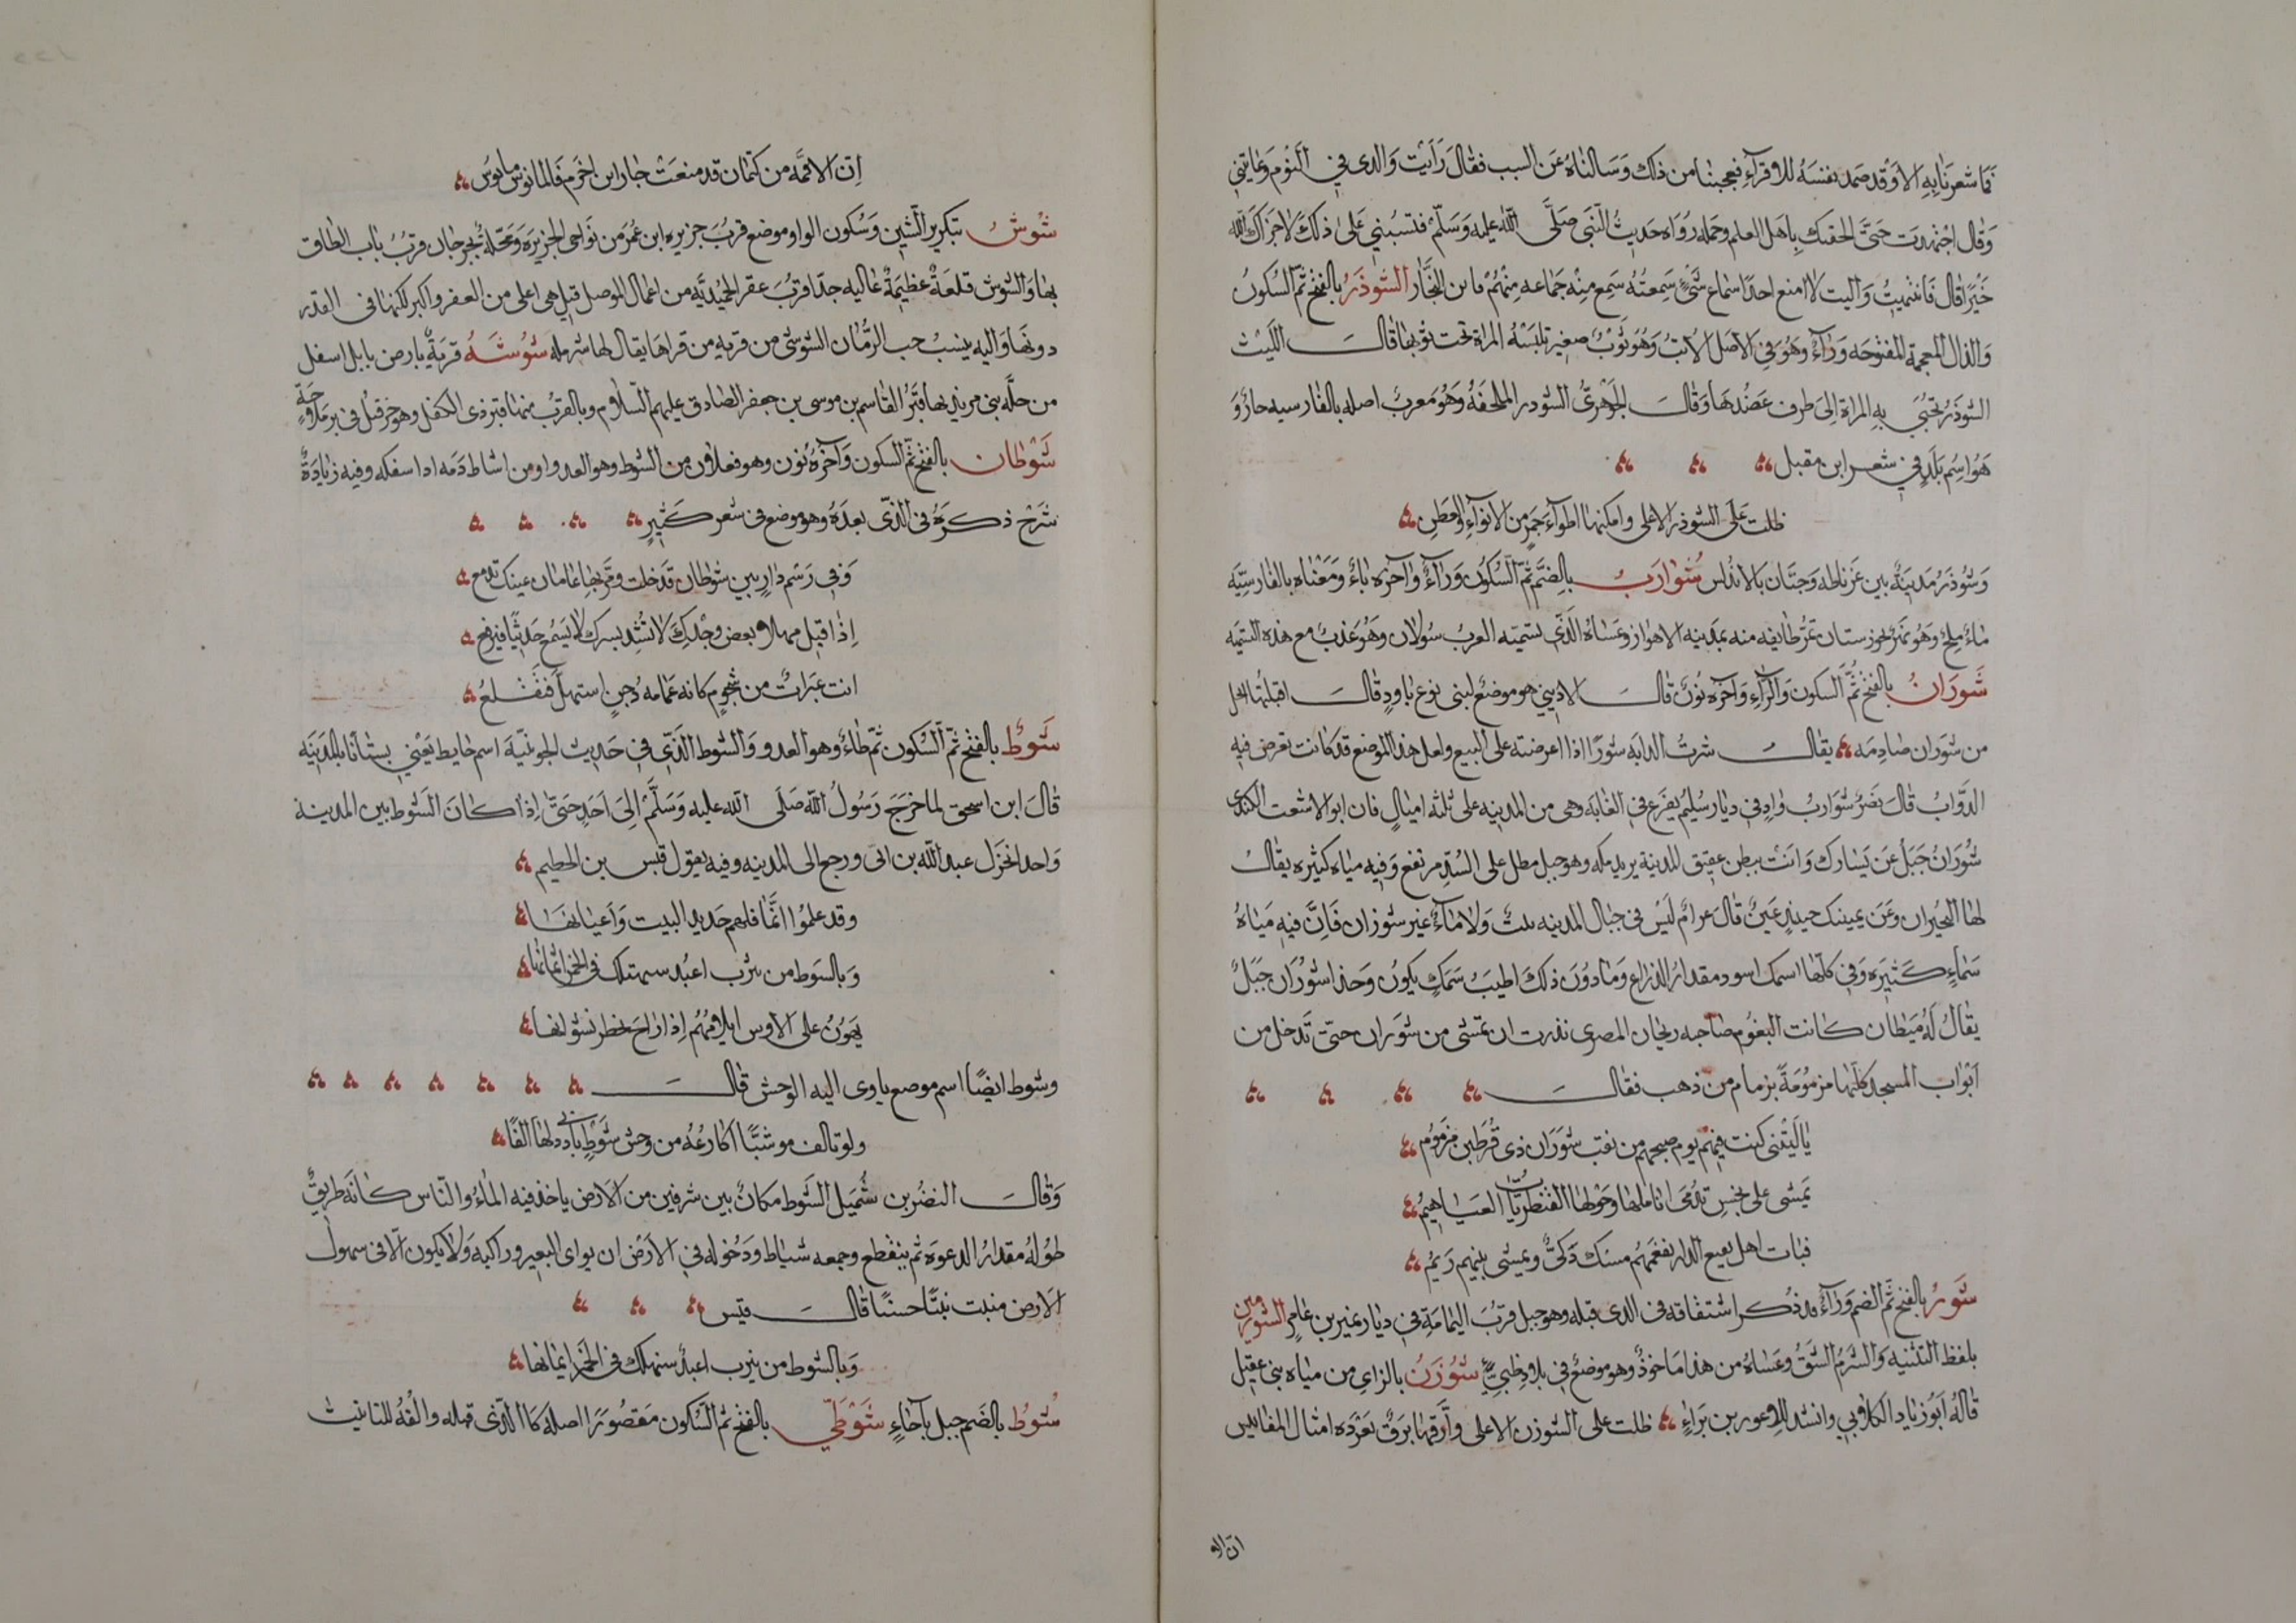 فما شعرنا به الا وقد صمد بنفسه للاقرآء فعجبنا من ذلك وسالناه عن السبب فقال رايت والدى في النوم وعاتبني
وقال اجتهدت حتى الحقتك باهل العلم وحمله رواه حديث النبى صلى الله عليه وسلم فتسبني على ذلك لا جزاك الله
خيرا قال فانتهيت واليت لا امنع احدا سماع شئ سمعته سمع منه جماعه منهم ابن النجار الشوذر بالفتح ثم السكون
والذال المعجمة المفتوحه ورآء وهو في الاصل الاتب وهو ثوب صغير تلبسه المراة تحت ثوبها قال الليث
الشوذر تجتبى به المراة الى طرف عضدها وقال الجوهرى الشودر الملحفة وهو معرب اصله بالفارسيه حاذر و
هو اسم بلد في شعر ابن مقبل
ظلت على الشوذر الاعلى وامكنها اطوآء جمر من الانوآء والعطن
وشوذر مدينة بين غرناطه وجيان بالاندلس شوارب بالضم ثم السكون ورآء وآخره باء ومعناه بالفارسيه
ماء ملح وهو نهر بخوزستان تمر طايفه منه بمدينه الاهواز وعساه الذى تسميته العرب سولان وهو عذب مع هذه التسميه
شوران بالفتح ثم السكون والرآء وآخره نون قال الاديبي هو موضع لبنى يربوع باود قال اقبلتها الخل
من شوران صادمه يقال شرت الدابه شورا اذا عرضته على البيع ولعل هذا الموضع قد كانت تعرض فيه
الدواب قال نصر شوارب واد في ديار سليم يفرع في الغابه وهى من المدينه على ثلثه اميال قال ابو الاشعث الكندى
شوران جبل عن يسارك وانت ببطن عقيق المدينة يريد مكه وهو جبل مطل على السد مرتفع وفيه مياه كثيره يقال
لها البحيران وعن يمينك حينيذ عين قال عرام ليس في جبال المدينه نبت ولا ماء غير شوران فان فيه مياه
سماء كثيره وفي كلها اسمك اسود مقدار الذراع ومادون ذلك اطيب سمك يكون وحذا شوران جبل
يقال له ميطان كانت البغوم صاحبه ريحان المصرى نذرت ان تمشى من شوران حتى تدخل من
ابواب المسجد كلها مزمومة بزمام من ذهب فقال
يا ليتنى كنت فيهم يوم صبحهم من نقب شوران ذى قرطين مزموم
تمشى على نجس تدمى اناملها وحولها القنطريات العياهيم
فبات اهل بقيع الدار يفغمهم مسك ذكى ويمشى بينهم ريم
شور بالفتح ثم الضم ورآء قد ذكر اشتقاقه فى الدى قبله وهو جبل قرب اليمامة في ديار نمير بن عامر الشورمين
بلفظ التثنيه والشرم الشق وعساه من هذا ماخوذ وهو موضع في بلاد طيئ شوزن بالزاى من مياه بنى عقيل
قاله ابو زياد الكلابي وانشد للاعور بن براء ظلت على الشوزن الاعلى وارقها برق بعردة امثال المقابيس
ان الا
ان الاقمه من كتمان قد منعت جار ابن اخرم فالمانوس مابوس
شوش بتكرير الشين وسكون الواو موضع قرب جزيره ابن عمر من نواحى الجزيرة ومحلة بجرجان قرب باب الطاق
بها والشوش قلعة عظيمة عاليه جدا قرب عقر الحميديه من اعمال الموصل قيل هى اعلى من العقر واكبر لكنها فى القدر
دونها واليه ينسب حب الرمان الشوشى من قريه من قراها يقال لها شرمله شوشه قرية بارض بابل اسفل
من حله بنى مزيد بها قبر القاسم بن موسى بن جعفر الصادق عليهم السلام وبالقرب منها قبر ذى الكفل وهو حزقيل فى بر ملاحة
شوطان بالفتح ثم السكون وآخره نون وهو فعلان من الشوط وهو العدو او من اشاط دمه اذا سفكه وفيه زيادة
شرح ذكره فى الذى بعده وهو موضع فى شعر كثير
وفي رسم دار بين شوطان قد خلت ومر بها عامان عينك تدمع
اذا قيل مهلا وبعض وجدك لا تشد بسرك لا يسمع حديثا فيرفع
اتت عبرات من سجوم كانه غمامه دجن استهل فتقلع
شوط بالفتح ثم السكون ثم طاء وهو العدو والشوط الذى في حديث الجونية اسم حايط يعني بستانا بالمدينه
قال ابن اسحق لما خرج رسول الله صلى الله عليه وسلم الى احد حتى اذا كان الشوط بين المدينة
واحد انخزل عبد الله بن ابى ورجع الى المدينه وفيه يقول قيس بن الخطيم
وقد علموا انما فلهم حديد البيت واعيانها
وبالشوط من يثرب اعبد ستهلك فى الخمر اثمانها
يهون على الاوس ايلامهم اذا راح يخطر نسوانها
وشوط ايضا اسم موضع ياوى اليه الوحش قال
ولو تالف موشيا اكارعه من وحش شوط بادنى دلها الفا
وقال النضر بن شميل الشوط مكان بين شرفين من الارض ياخذ فيه الماء والناس كانه طريق
طوله مقدار الدعوة ثم ينقطع وجمعه شياط ودخوله في الارض ان يوارى البعير وراكبه ولا يكون الا فى سهول
الارض منبت نبتا حسنا قال قيس
وبالشوط من يثرب اعبد ستهلك فى الخمر ايمانها
شوط بالضم جبل بآجاء شوطى بالفتح ثم السكون مقصورا اصله كا الذى قبله والفه للتانيث